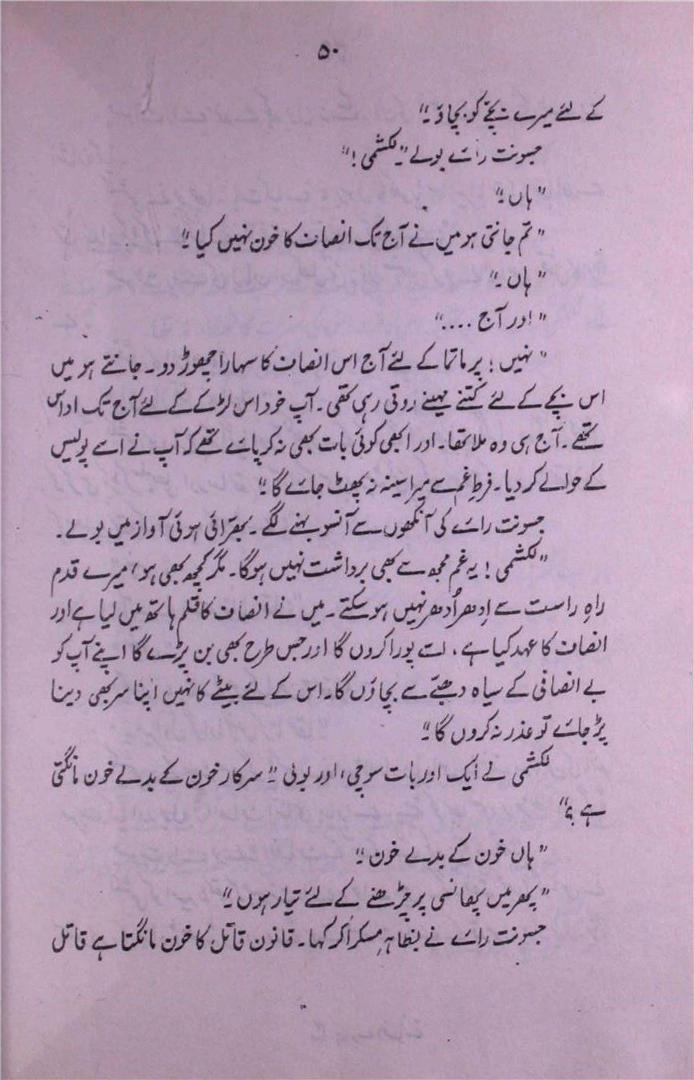 ۵۰
کے لئے میرے بچّے کو بچاؤ۔"
جسونت رائے بولے "لکشمی!"
"ہاں۔"
"تم جانتی ہو میں نے آج تک انصاف کا خون نہیں کیا۔"
"ہاں۔"
"اور آج ...."
"نہیں! پرماتما کے لئے آج اس انصاف کا سہارا چھوڑ دو۔ جانتے ہو میں
اس بچے کے لئے کتنے مہینے روتی رہی تھی۔ آپ خود اس لڑکے کے لئے آج تک اداس
تھے۔ آج ہی وہ ملا تھا۔ اور ابھی کوئی بات بھی نہ کر پائے تھے کہ آپ نے اسے پولیس
کے حوالے کر دیا۔ فرطِ غم سے میرا سینہ نہ پھٹ جائے گا؟"
جسونت رائے کی آنکھوں سے آنسو بہنے لگے۔ بھرّائی ہوئی آواز میں بولے۔
"لکشمی! یہ غم مجھ سے بھی برداشت نہیں ہوگا۔ مگر کچھ بھی ہو، میرے قدم
راہِ راست سے اِدھر اُدھر نہیں ہو سکتے۔ میں نے انصاف کا قلم ہاتھ میں لیا ہے اور
انصاف کا عہد کیا ہے، اسے پورا کروں گا اور جس طرح بھی بن پڑے گا اپنے آپ کو
بے انصافی کے سیاہ دھبّے سے بچاؤں گا۔ اس کے لئے بیٹے کا نہیں اپنا سر بھی دینا
پڑ جائے تو عذر نہ کروں گا۔"
لکشمی نے ایک اور بات سوچی، اور بولی "سرکار خون کے بدلے خون مانگتی
ہے؟"
"ہاں خون کے بدلے خون۔"
"پھر میں پھانسی پر چڑھنے کے لئے تیار ہوں۔"
جسونت رائے نے بظاہر مسکرا کر کہا۔ قانون قاتل کا خون مانگتا ہے قاتل